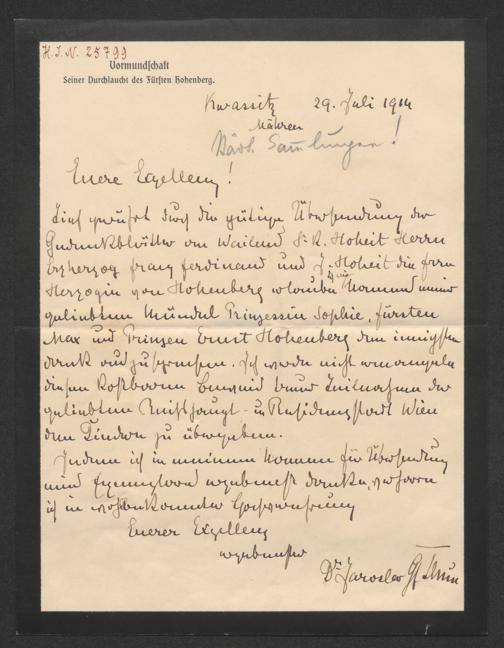 H. I. N. 25799
Vormundschaft
Seiner Durchlaucht des Fürsten Hohenberg.
Kwassitz 29. Juli 1914
Mähren
Städt. Sammlungen!
Euere Exzellenz!
Tief gerührt durch die gütige Übersendung der
Gedenkblätter an Weiland S. K. Hoheit Herrn
Erzherzog Franz Ferdinand und I. Hoheit die Frau
Herzogin von Hohenberg erlaube Namens meiner
geliebten Mündel Prinzessin Sophie, Fürsten
Max und Prinzen Ernst Hohenberg den innigsten
Dank auszusprechen. Ich werde nicht ermangeln
diesen kostbaren Beweis treuer Teilnahme der
geliebten Reichshaupt- u Residenzstadt Wien
den Kindern zu übergeben.
Indem ich in meinem Namen für Übersendung
eines Exemplares ergebenst danke, verharre
ich in ausgezeichneter Hochachtung
Euerer Exzellenz
ergebenster
Dr Jaroslav Gf Thun